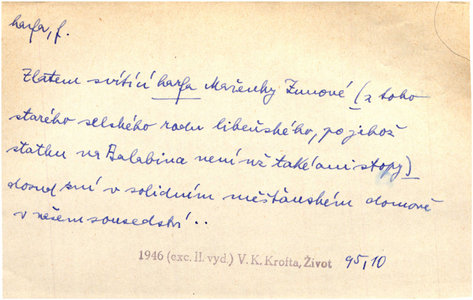 harfa, f.
Zlatem svítící harfa Mařenky Zunové (z toho
starého selského rodu libeňského, po jehož
statku na Balabina není už také ani stopy)
dosud sní v solidním měšťanském domově
v našem sousedství ..
1946 (exc. II. vyd.) V. K. Krofta, Život 95, 10